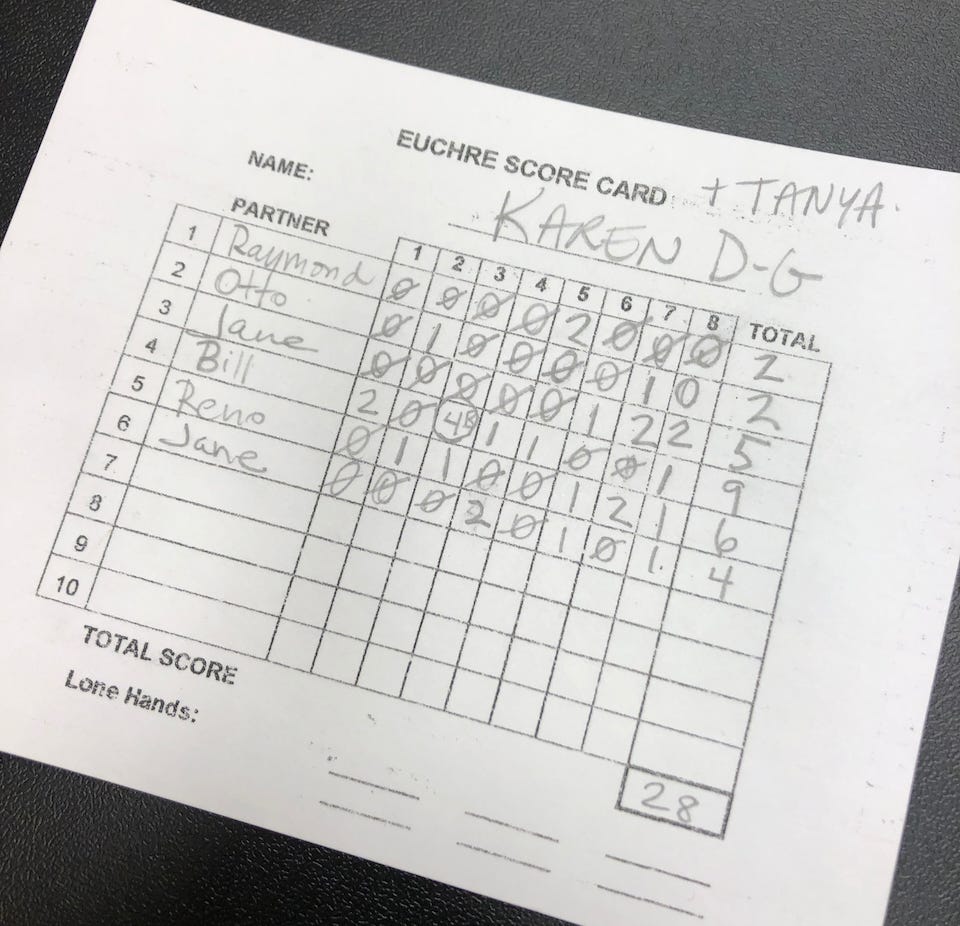 EUCHRE SCORE CARD + TANYA.
NAME: KAREN D-G
PARTNER 1 2 3 4 5 6 7 8 TOTAL
1 Raymond 0 0 0 0 2 0 0 0 2
2 Otto 0 1 0 0 0 0 1 0 2
3 Jane 0 0 0 0 0 1 2 2 5
4 Bill 2 0 4B 1 1 0 0 1 9
5 Reno 0 1 1 0 0 1 2 1 6
6 Jane 0 0 0 2 0 1 0 1 4
7
8
9
10
TOTAL SCORE 28
Lone Hands: